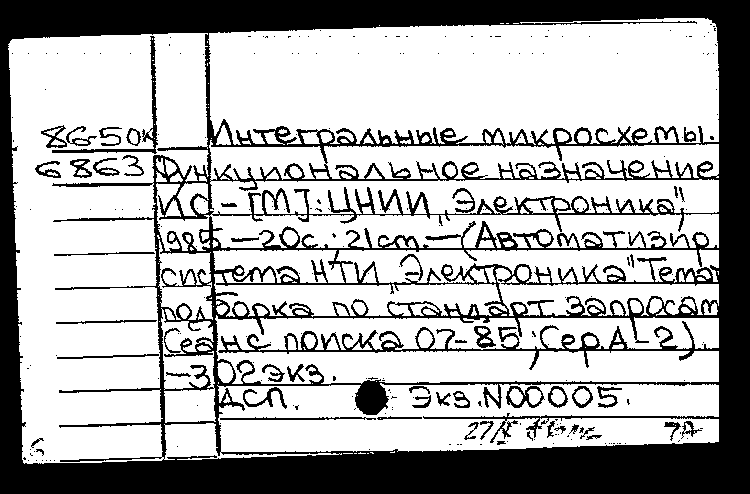 86-50к Интегральные микросхемы.
6863 Функциональное назначение
ИС - [М]: ЦНИИ „Электроника",
1985. — 20с.; 21см. — (Автоматизир.
система НТИ „Электроника" Темат
подборка по стандарт. запросам
Сеанс поиска 07-85; Сер. А-2).
— 302экз.
ДСП. Экз. N00005.
27/X 7А
6